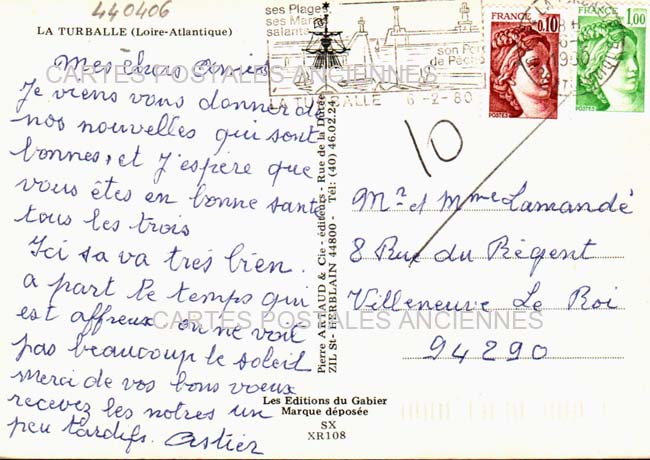 440406
LA TURBALLE (Loire-Atlantique)
Mes chers Amis
Je viens vous donner de
nos nouvelles qui sont
bonnes, et J'espère que
vous êtes en bonne santé
tous les trois
Ici sa va très bien.
a part le temps qui
est affreux on ne voit
pas beaucoup le soleil
merci de vos bons voeux
recevez les notres un
peu tardifs. Astier
ses Plages
ses Marais
salants
son Port
de Pêche
LA TURBALLE 6-2-80
FRANCE
0,10
POSTES
FRANCE
1,00
POSTES
1980
10
Mr et Mme Lamandé
8 Rue du Régent
Villeneuve Le Roi
94290
Pierre ARTAUD & Cie - éditeurs - Rue de la Dutée
ZIL St-HERBLAIN 44800 - Tél: (40) 46.02.24
Les Editions du Gabier
Marque déposée
SX
XR108
CARTES POSTALES ANCIENNES
CARTES POSTALES ANCIENNES